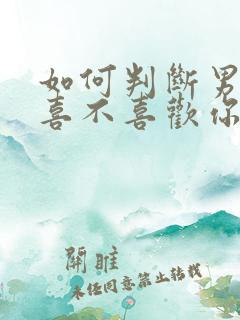 如何判斷男
喜不喜歡你
關雎
未經同意禁止轉載